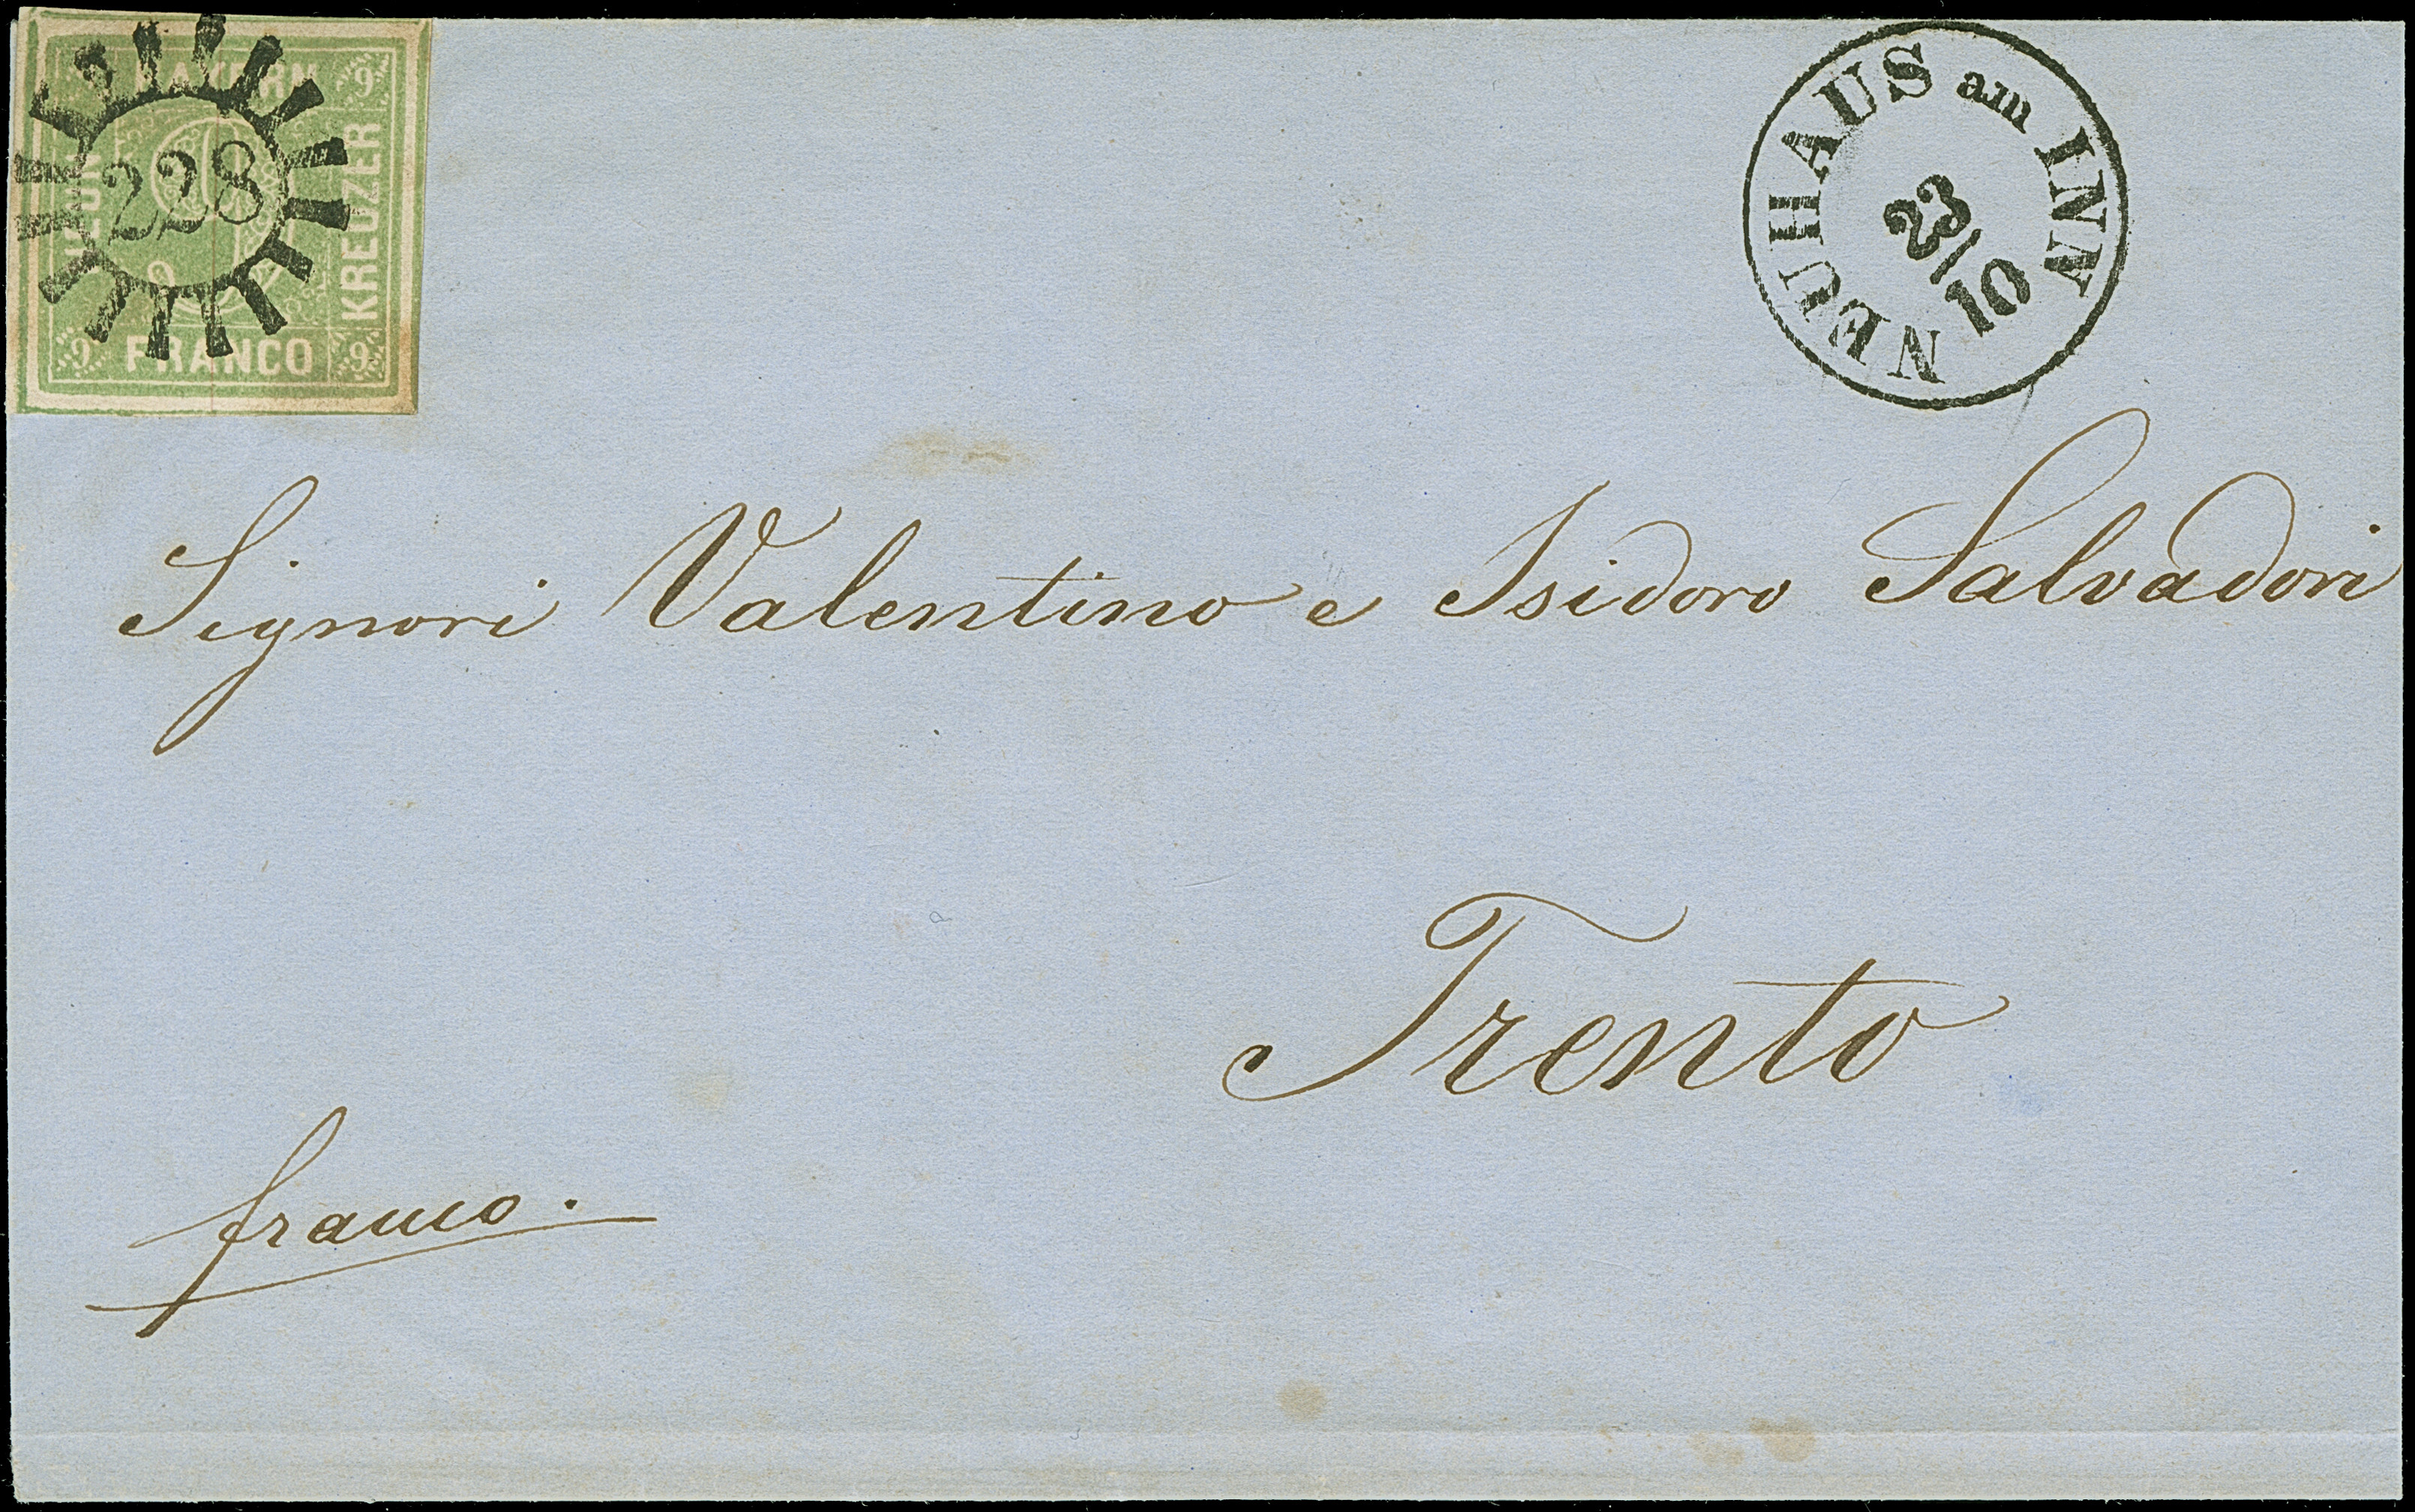 BAYERN
NEUN
KREUZER
FRANCO
9
9
9
9
228
NEUHAUS am INN
23/10
Signori Valentino e Isidoro Salvadori
Trento
franco.